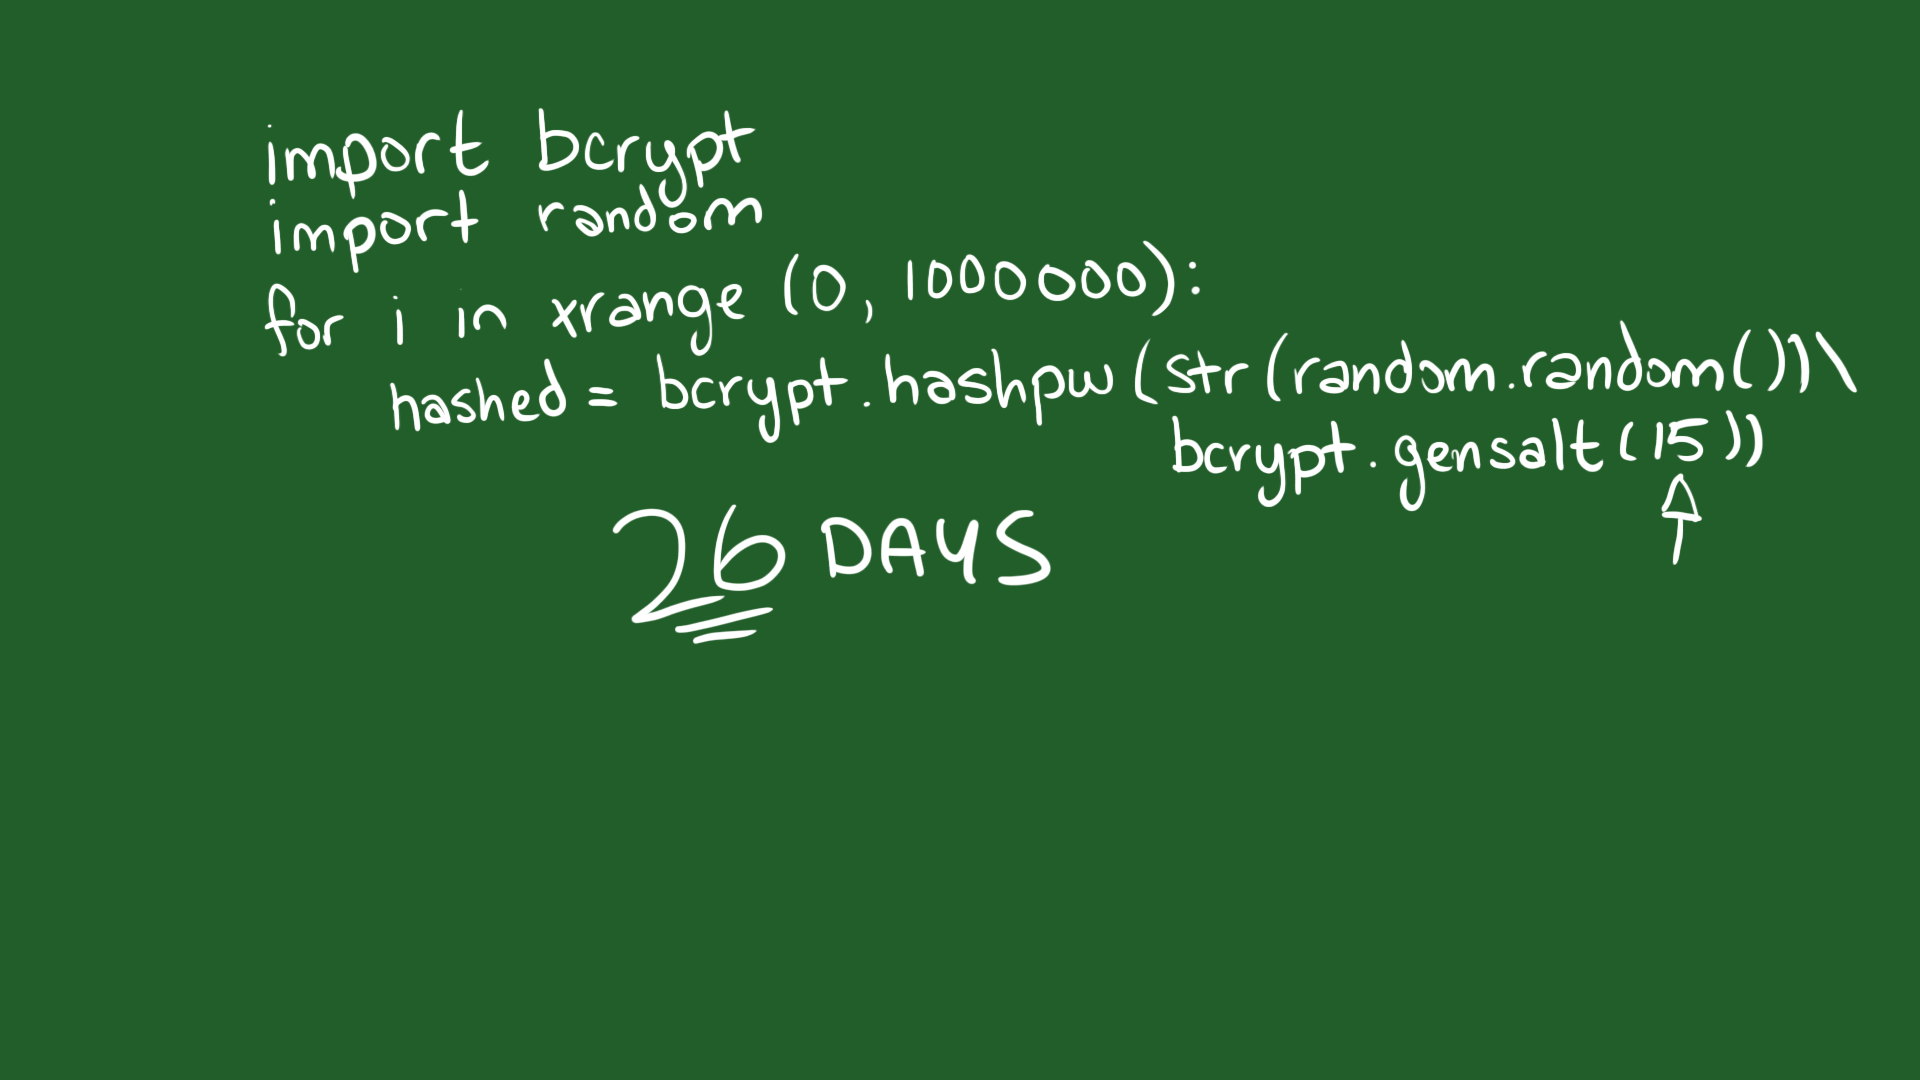 import bcrypt
import random
for i in xrange (0, 1000000):
hashed = bcrypt.hashpw (str (random.random())\
bcrypt.gensalt (15))
26 DAYS